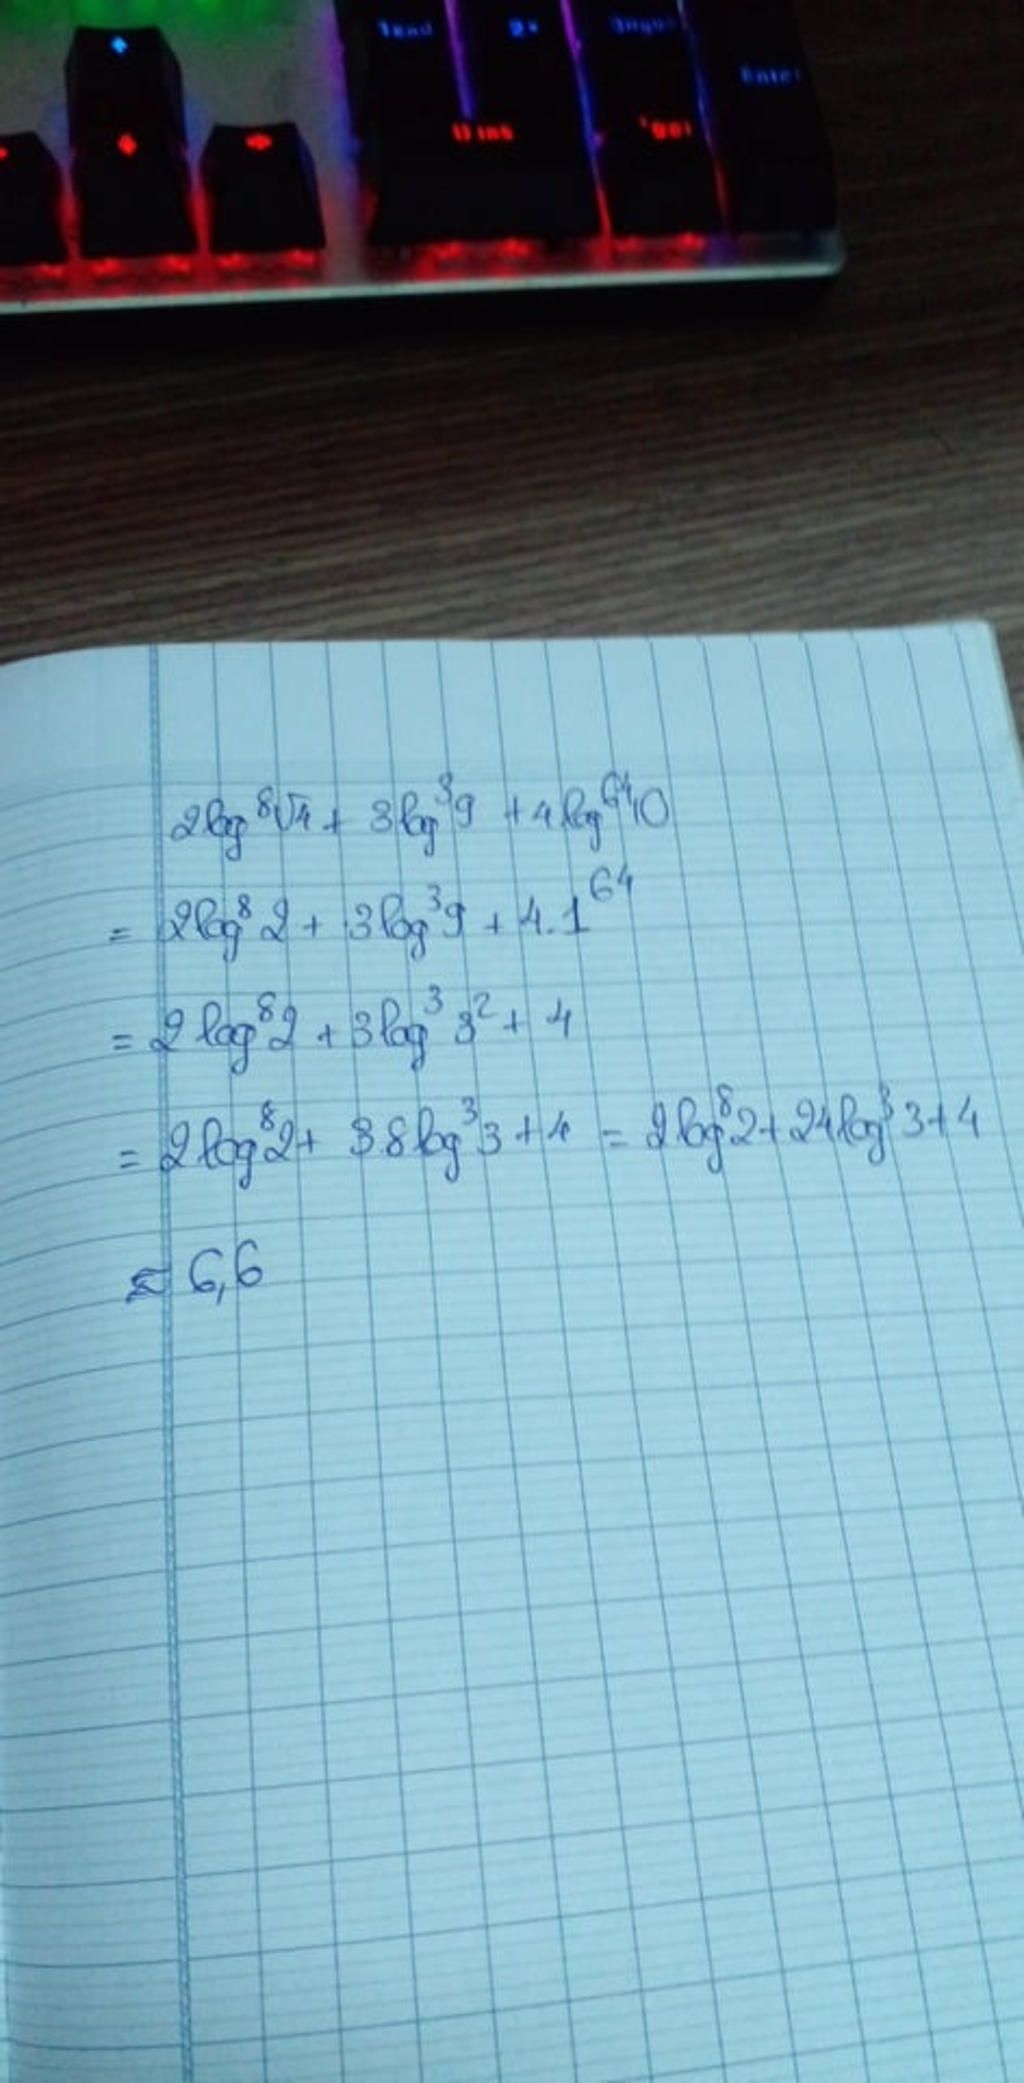 Enter
2log⁸√4 + 3log³9 + 4log⁶⁴10
= 2log⁸2 + 3log³9 + 4.1⁶⁴
= 2log⁸2 + 3log³3² + 4
= 2log⁸2 + 3.8log³3 + 4 = 2log⁸2 + 24log³3 + 4
≈ 6,6